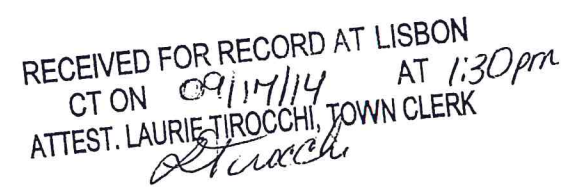 RECEIVED FOR RECORD AT LISBON
CT ON 09/17/14 AT 1:30pm
ATTEST. LAURIE TIROCCHI, TOWN CLERK
LTirocchi